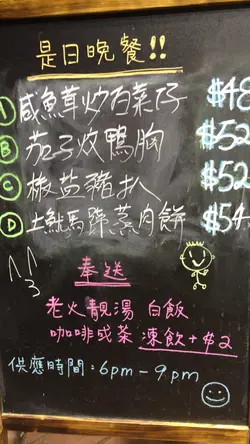 是日晚餐!!
A 咸魚茸炒石菜仔 $48
B 茄子炆鴨胸 $52
C 椒盐豬扒 $52
D 土魷馬蹄蒸肉餅 $54
奉送
老火靚湯 白飯
咖啡或茶 凍飲+$2
供應時間:6pm-9pm